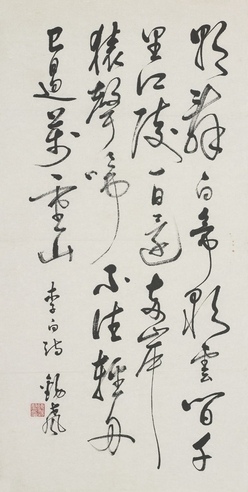 朝辭白帝彩雲間千
里江陵一日還兩岸
猿聲啼不住輕舟
已過萬重山
李白詩